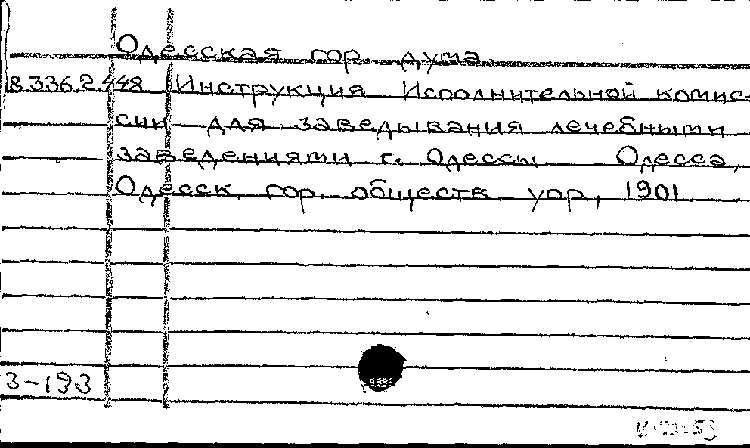 Одесская гор. дума
8.336.2.448 Инструкция Исполнительной комис-
сии для заведывания лечебными
заведениями г. Одессы Одесса,
Одесск. гор. обществ. упр., 1901
3-193